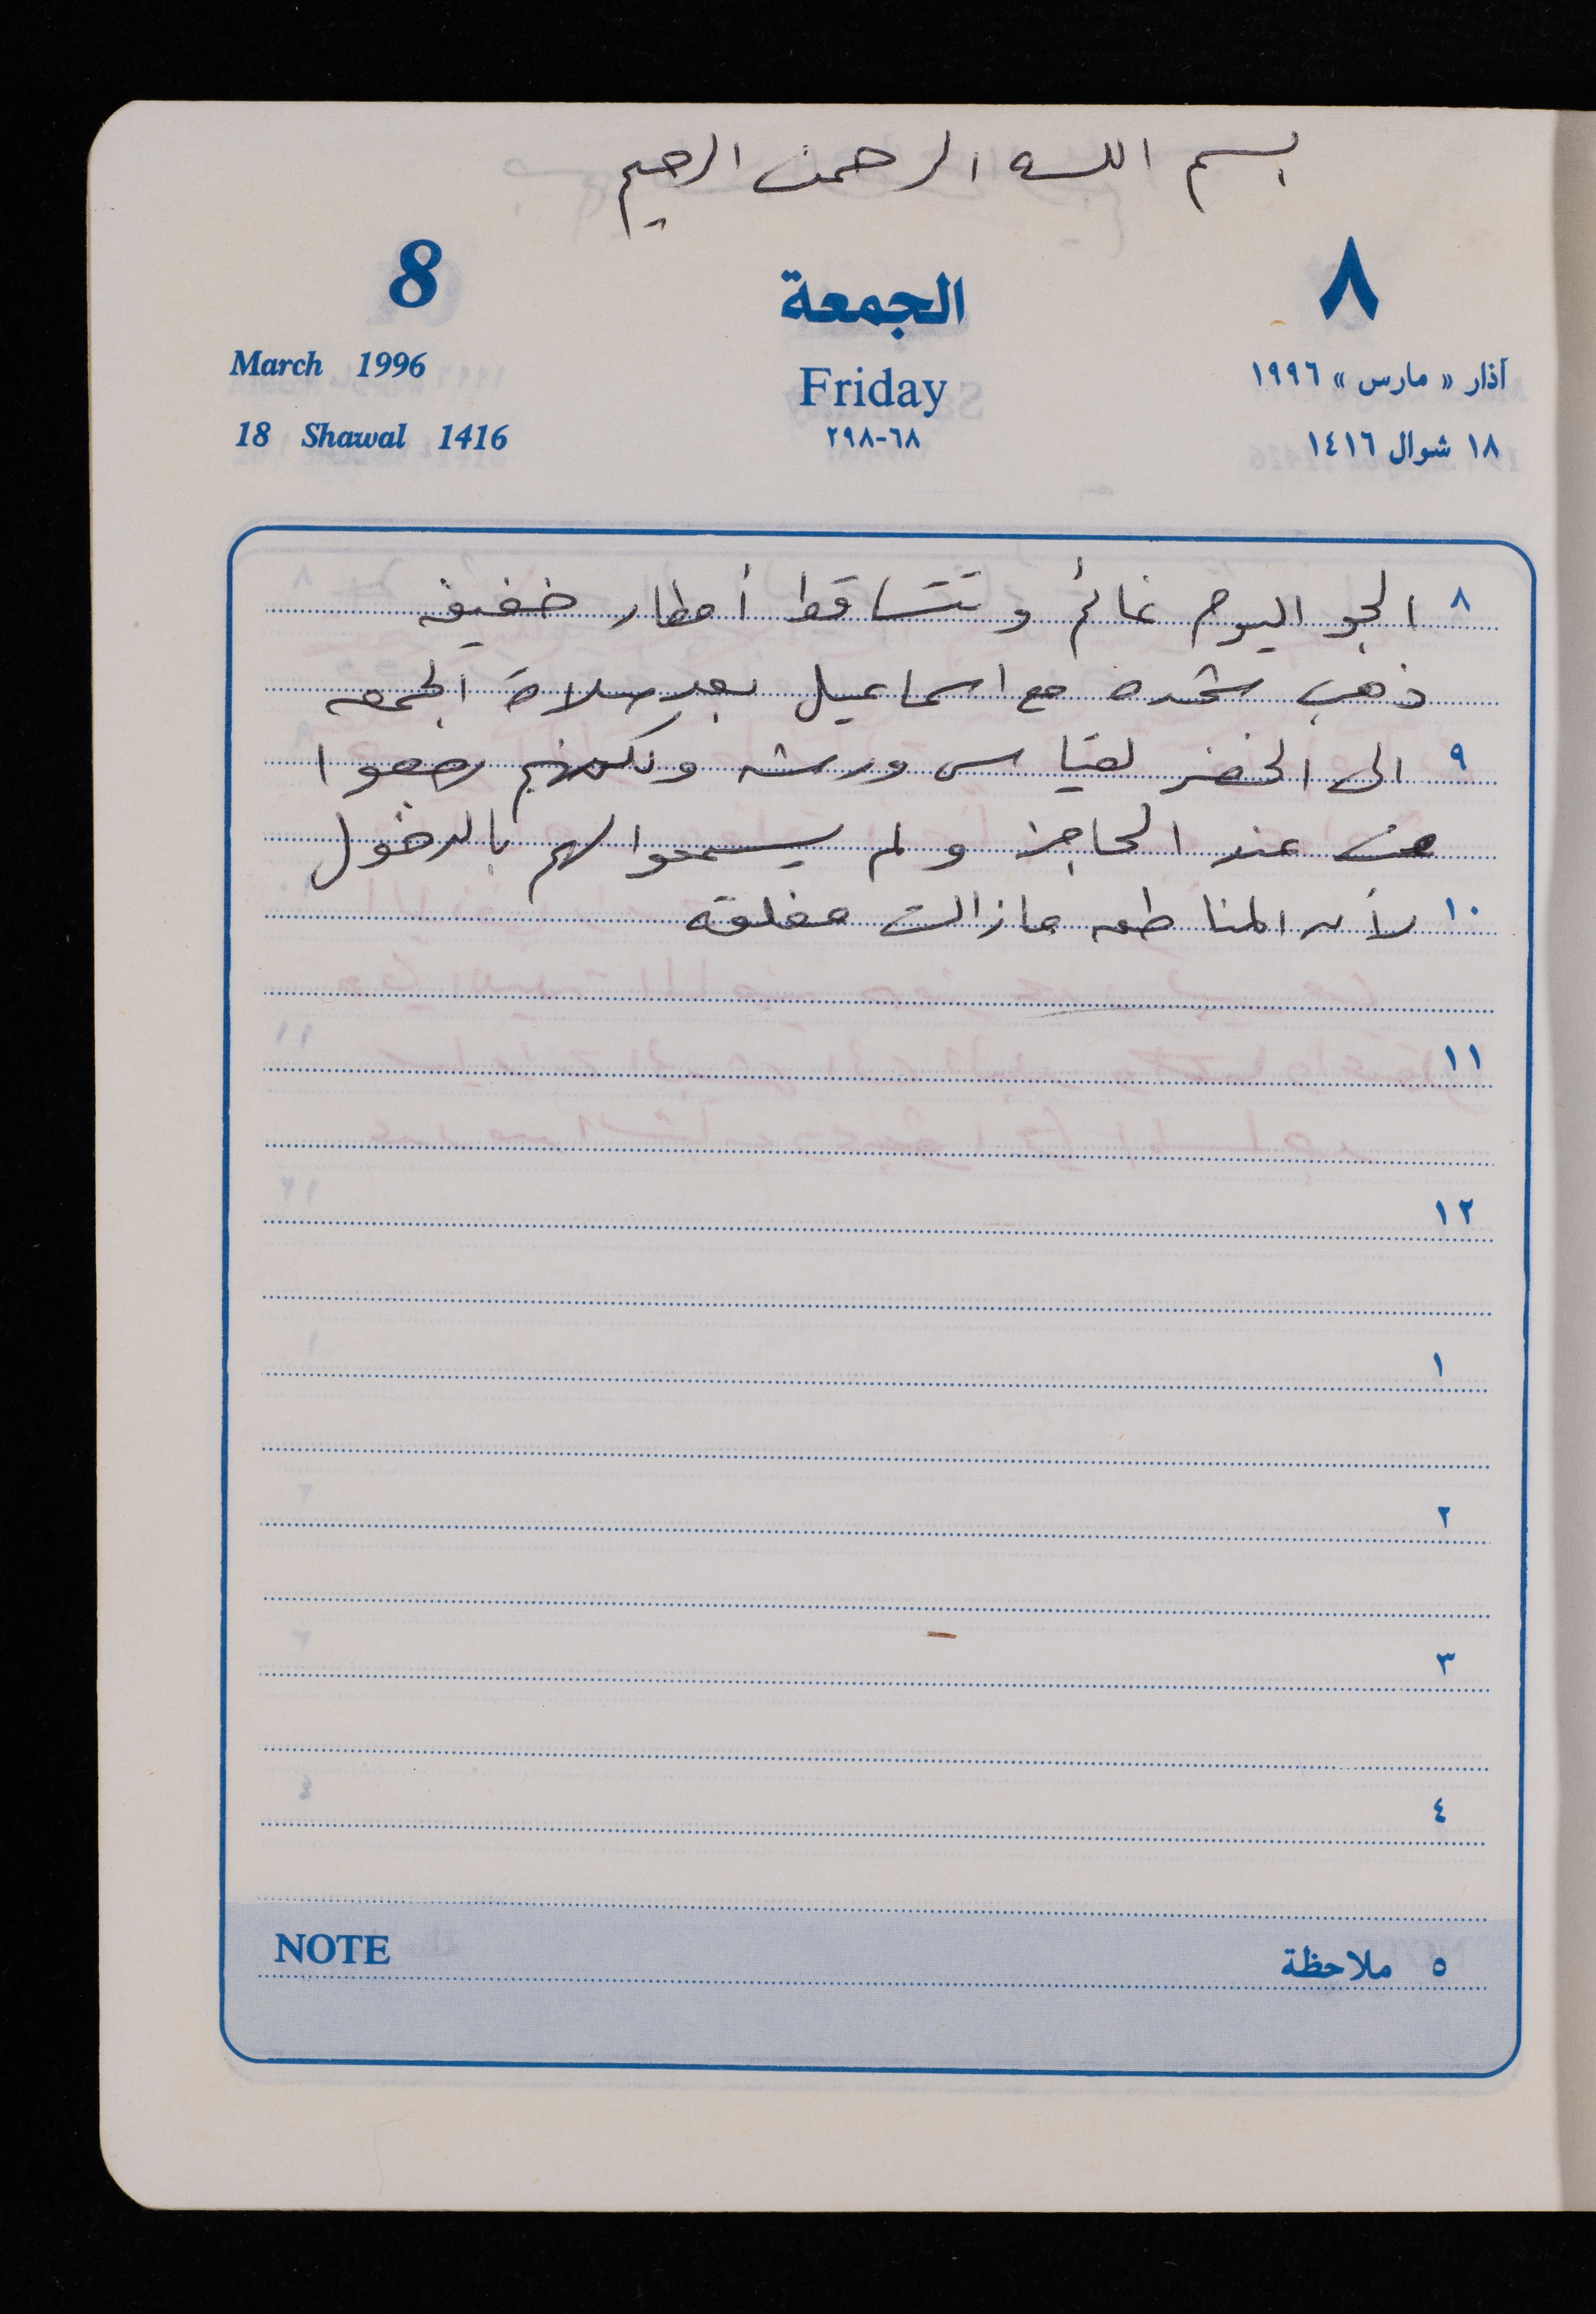 بسم الله الرحمن الرحيم
8 الجمعة ٨
March 1996 Friday آذار « مارس » ١٩٩٦
18 Shawal 1416 ٢٩٨-٦٨ ١٨ شوال ١٤١٦
٨ الجو اليوم غائم وتتساقط أمطار خفيفه
ذهب شحده مع اسماعيل بعد صلاة الجمعه
٩ الى الخضر لقياس ورشه ولكنهم رجعوا
من عند الحاجز ولم يسمحوا لهم بالدخول
١٠ لأن المناطق مازالت مغلقه
١١
١٢
١
٢
٣
٤
NOTE ٥ ملاحظة